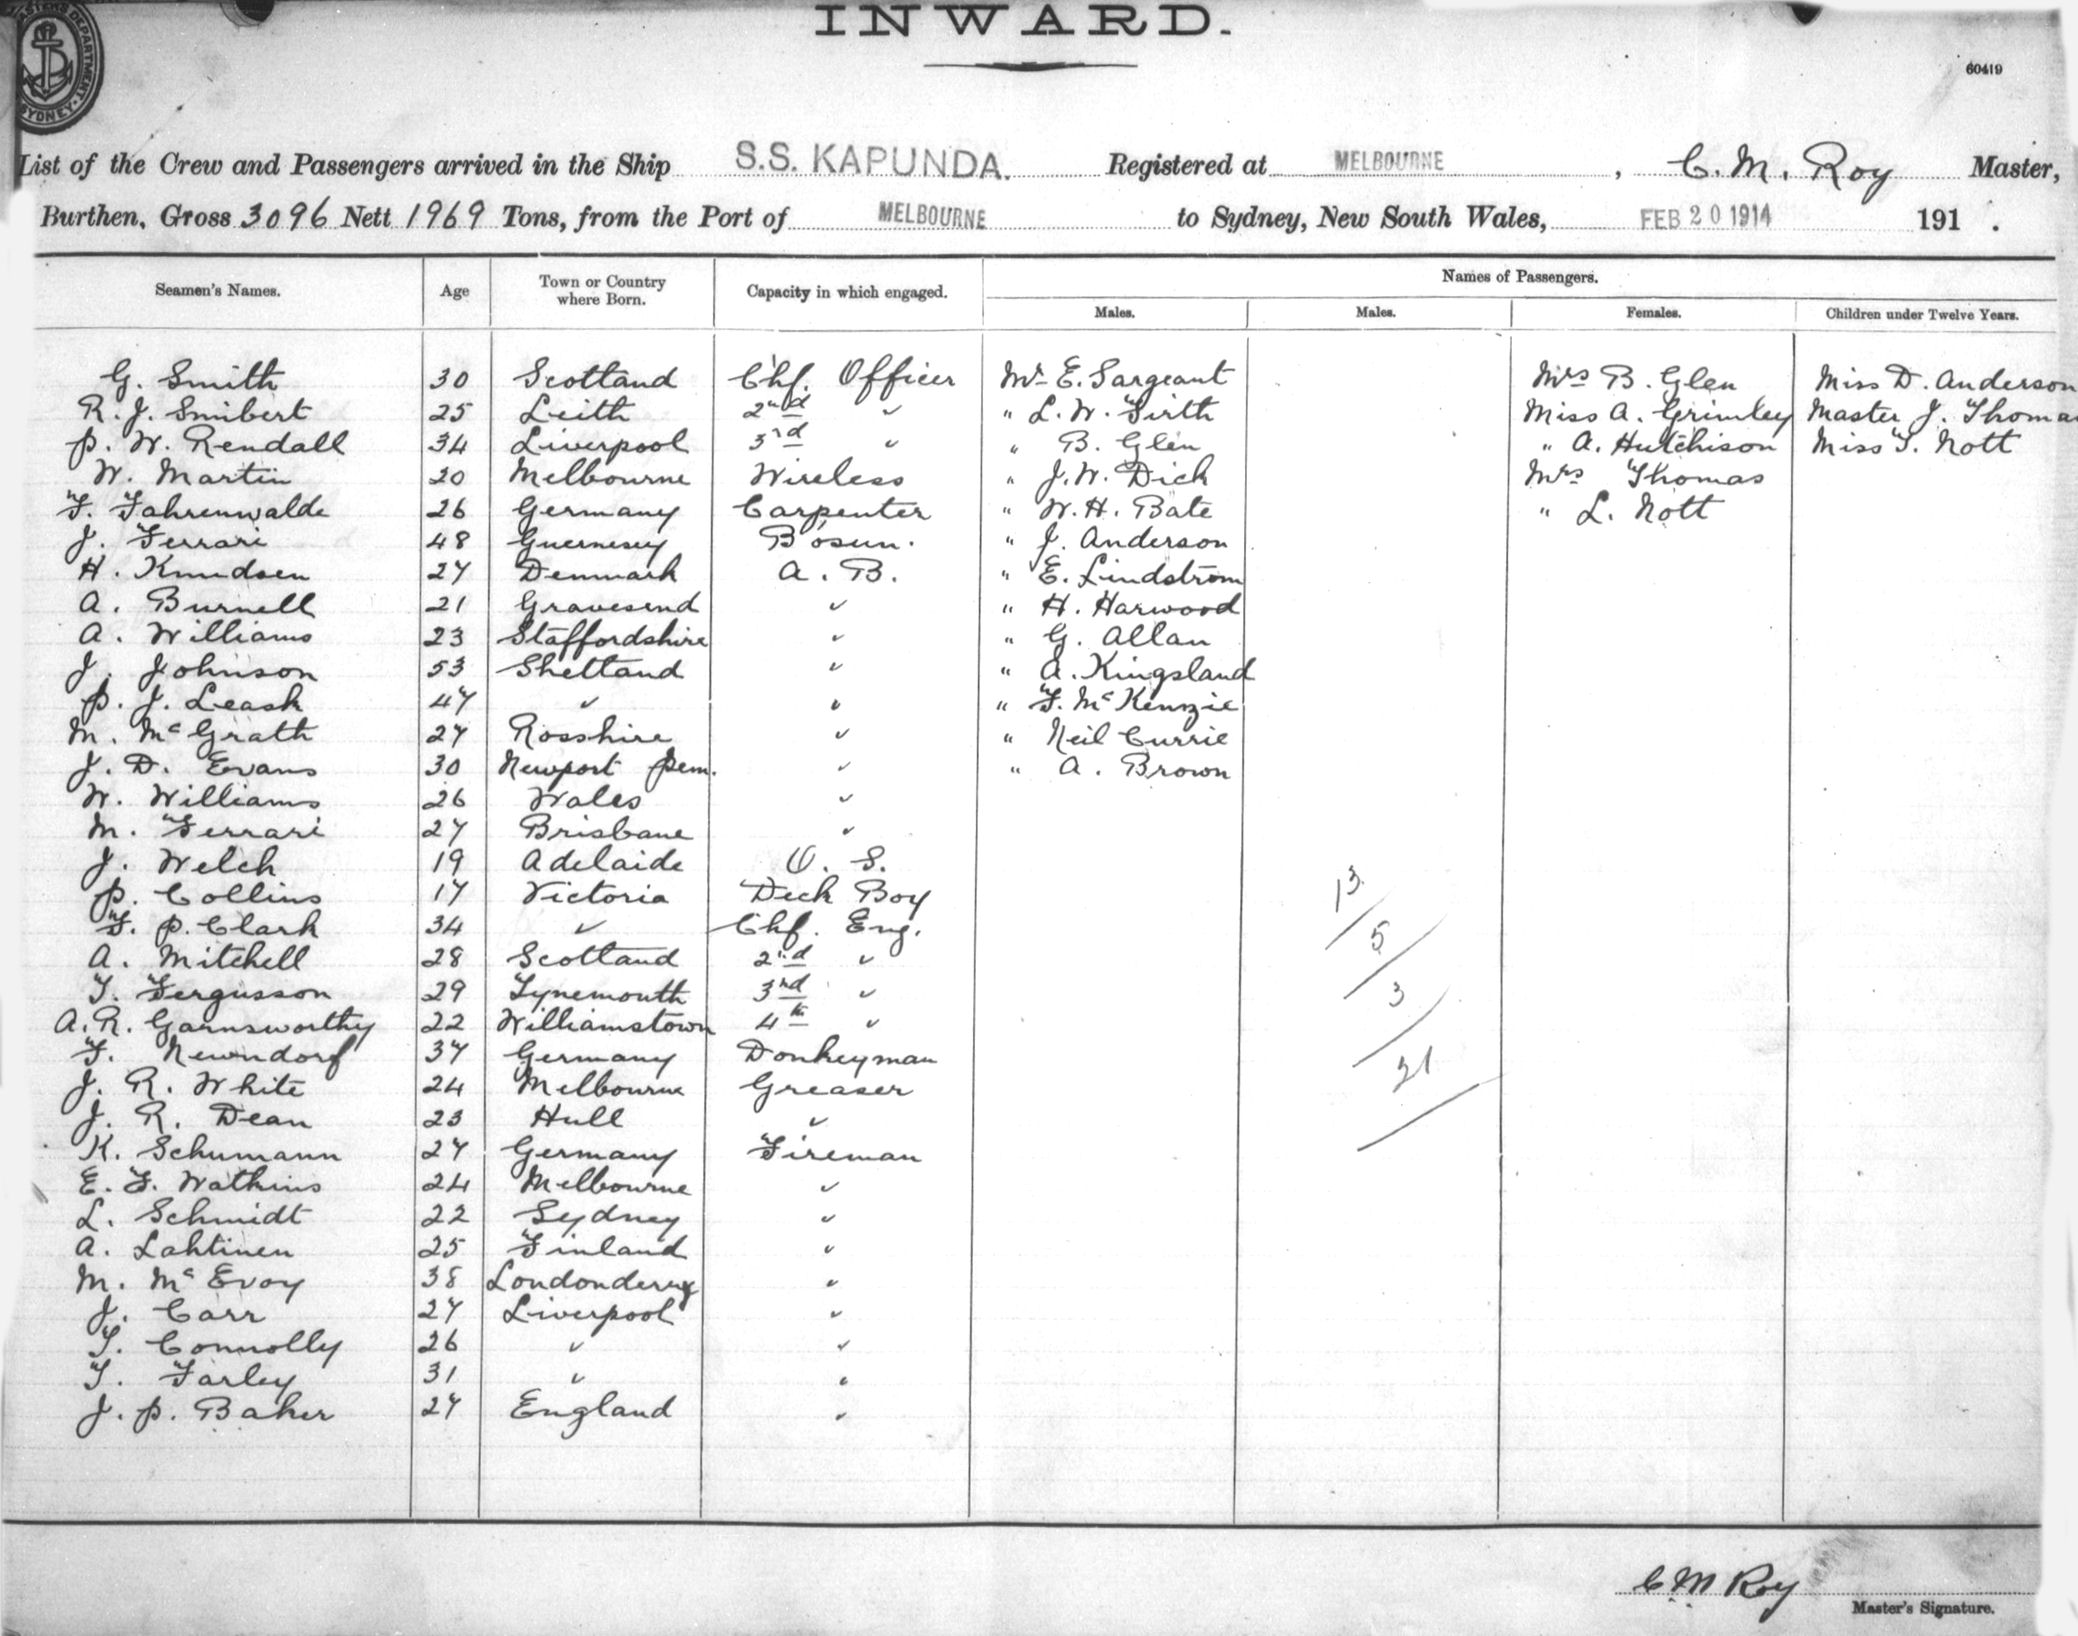 INWARD.
60419
DEPARTMENT SYDNEY
List of the Crew and Passengers arrived in the Ship S.S. KAPUNDA. Registered at MELBOURNE, C. M. Roy Master,
Burthen, Gross 3096 Nett 1969 Tons, from the Port of MELBOURNE to Sydney, New South Wales, FEB 20 1914 191 .
Seamen's Names. Age Town or Country where Born. Capacity in which engaged. Names of Passengers.
Males. Males. Females. Children under Twelve Years.
G. Smith 30 Scotland Chf. Officer Mr E. Sargeant Mrs B. Glen Miss D. Anderson
R. J. Smibert 25 Leith 2nd " " L. W. Firth Miss A. Grimley Master J. Thomas
P. W. Rendall 34 Liverpool 3rd " " B. Glen " A. Hutchison Miss T. Nott
W. Martin 20 Melbourne Wireless " J. W. Dick Mrs Thomas
F. Fahrenwalde 26 Germany Carpenter " W. H. Bate " L. Nott
J. Ferrari 48 Guernesey Bosun. " J. Anderson
H. Knudsen 27 Denmark A. B. " E. Lindstrom
A. Burnell 21 Gravesend " " H. Harwood
A. Williams 23 Staffordshire " " G. Allan
J. Johnson 53 Shetland " " A. Kingsland
P. J. Leask 47 " " " F. McKenzie
M. McGrath 27 Rosshire " " Neil Currie
J. D. Evans 30 Newport Pem. " " A. Brown
W. Williams 26 Wales "
M. Ferrari 27 Brisbane "
J. Welch 19 Adelaide O. S.
P. Collins 17 Victoria Deck Boy 13
F. P. Clark 34 " Chf. Eng. 5
A. Mitchell 28 Scotland 2nd "
T. Fergusson 29 Tynemouth 3rd " 3
A. R. Garnsworthy 22 Williamstown 4th "
F. Newndorf 37 Germany Donkeyman 21
J. R. White 24 Melbourne Greaser
J. R. Dean 23 Hull "
K. Schumann 27 Germany Fireman
E. F. Watkins 24 Melbourne "
L. Schmidt 22 Sydney "
A. Lahtinen 25 Finland "
M. McEvoy 38 Londonderry "
J. Carr 27 Liverpool "
T. Connolly 26 " "
T. Farley 31 " "
J. P. Baker 27 England "
C M Roy
Master's Signature.